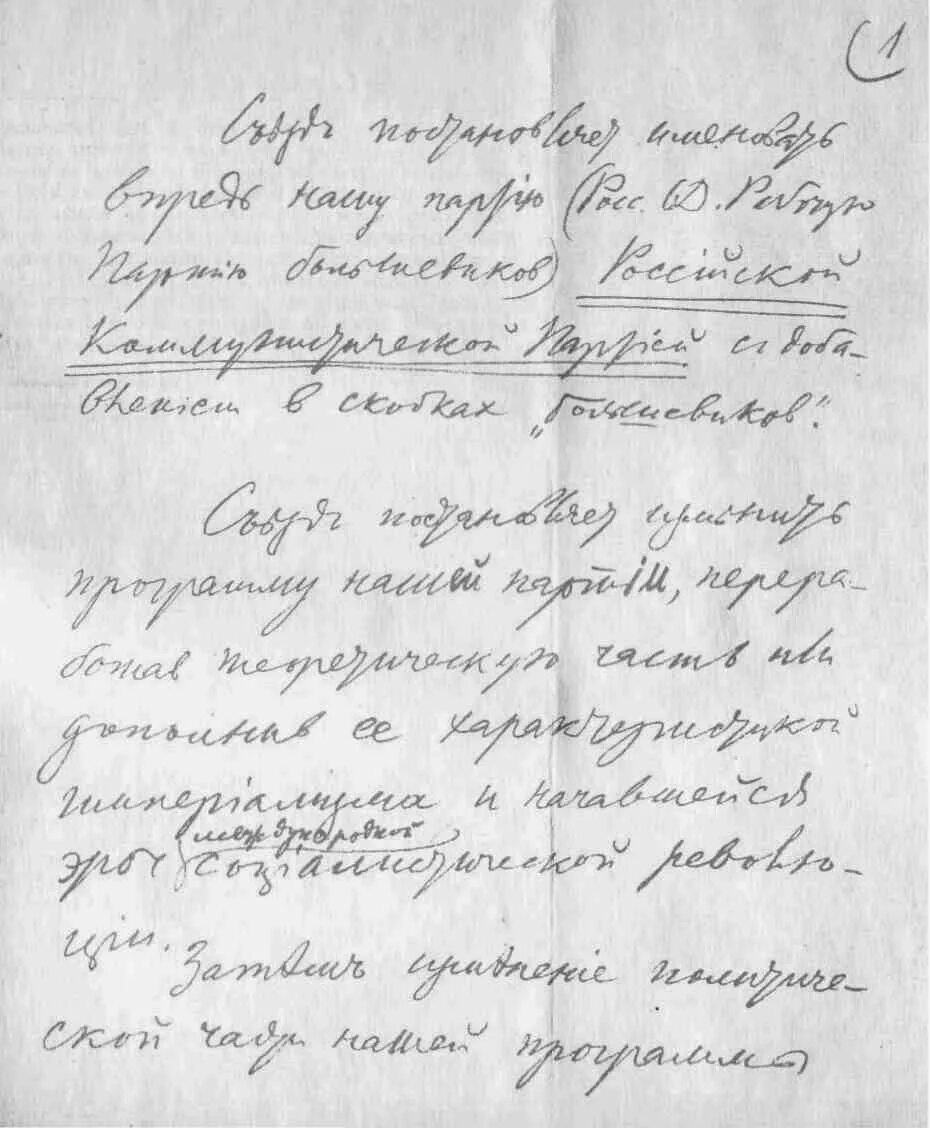 1
Съѣздъ постановляет именовать
впредь нашу партію (Росс. СД. Рабочую
Партию большевиков) Россійской
Коммунистической Партіей с добав-
влением в скобках „большевиков".
Съѣздъ постановляет изменить
программу нашей партіи, перера-
ботав теоретическую часть или
дополнив ее характеристикой
империализма и начавшейся
международной
эры социалистической револю-
ции.
Затѣмъ измѣненіе политиче-
ской части нашей программы